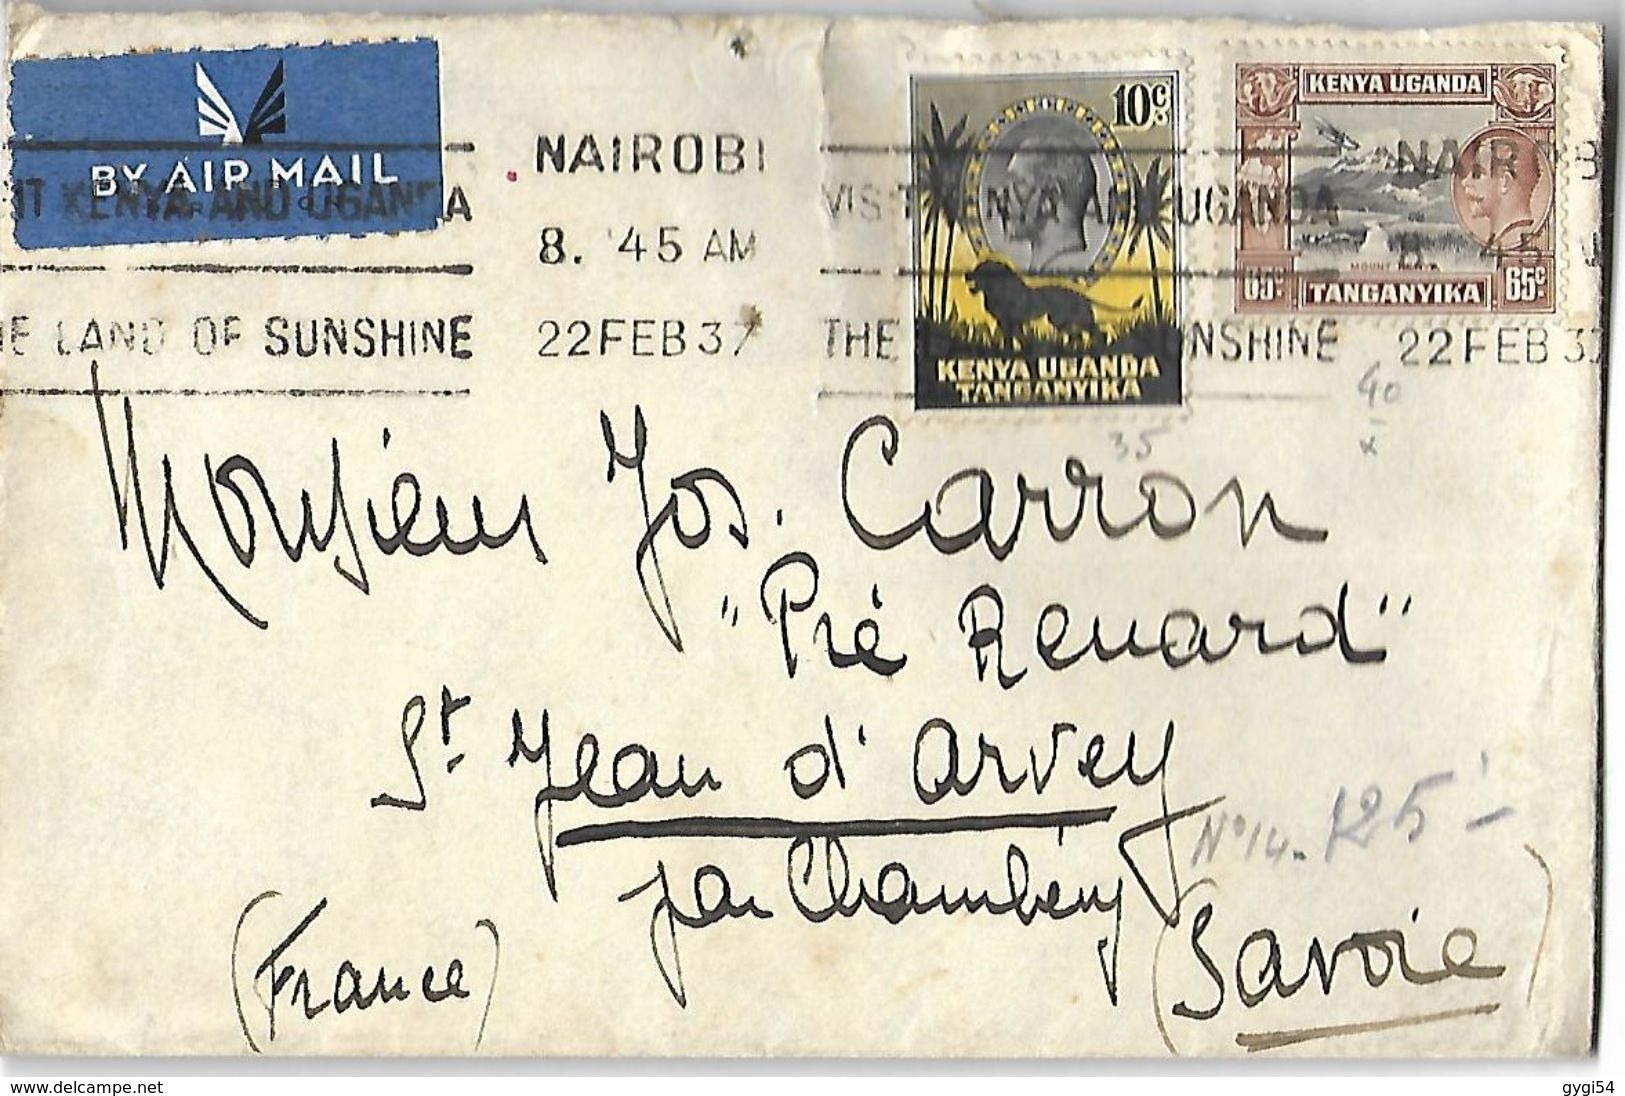 BY AIR MAIL
NAIROBI
NAIROB
IT KENYA AND UGANDA
VISIT KENYA AND UGANDA
8. 45 AM
8. 45
E LAND OF SUNSHINE
22 FEB 37
THE
NSHINE
22 FEB 37
10c
KENYA UGANDA
TANGANYIKA
KENYA UGANDA
65c
TANGANYIKA
65c
40
x
35
Monsieur Jos. Carron
"Pré Renard"
St. Jean d'Arvey
N° 14. 125 -
par Chambéry
(France)
(Savoie)
delcampe.net
gygi54